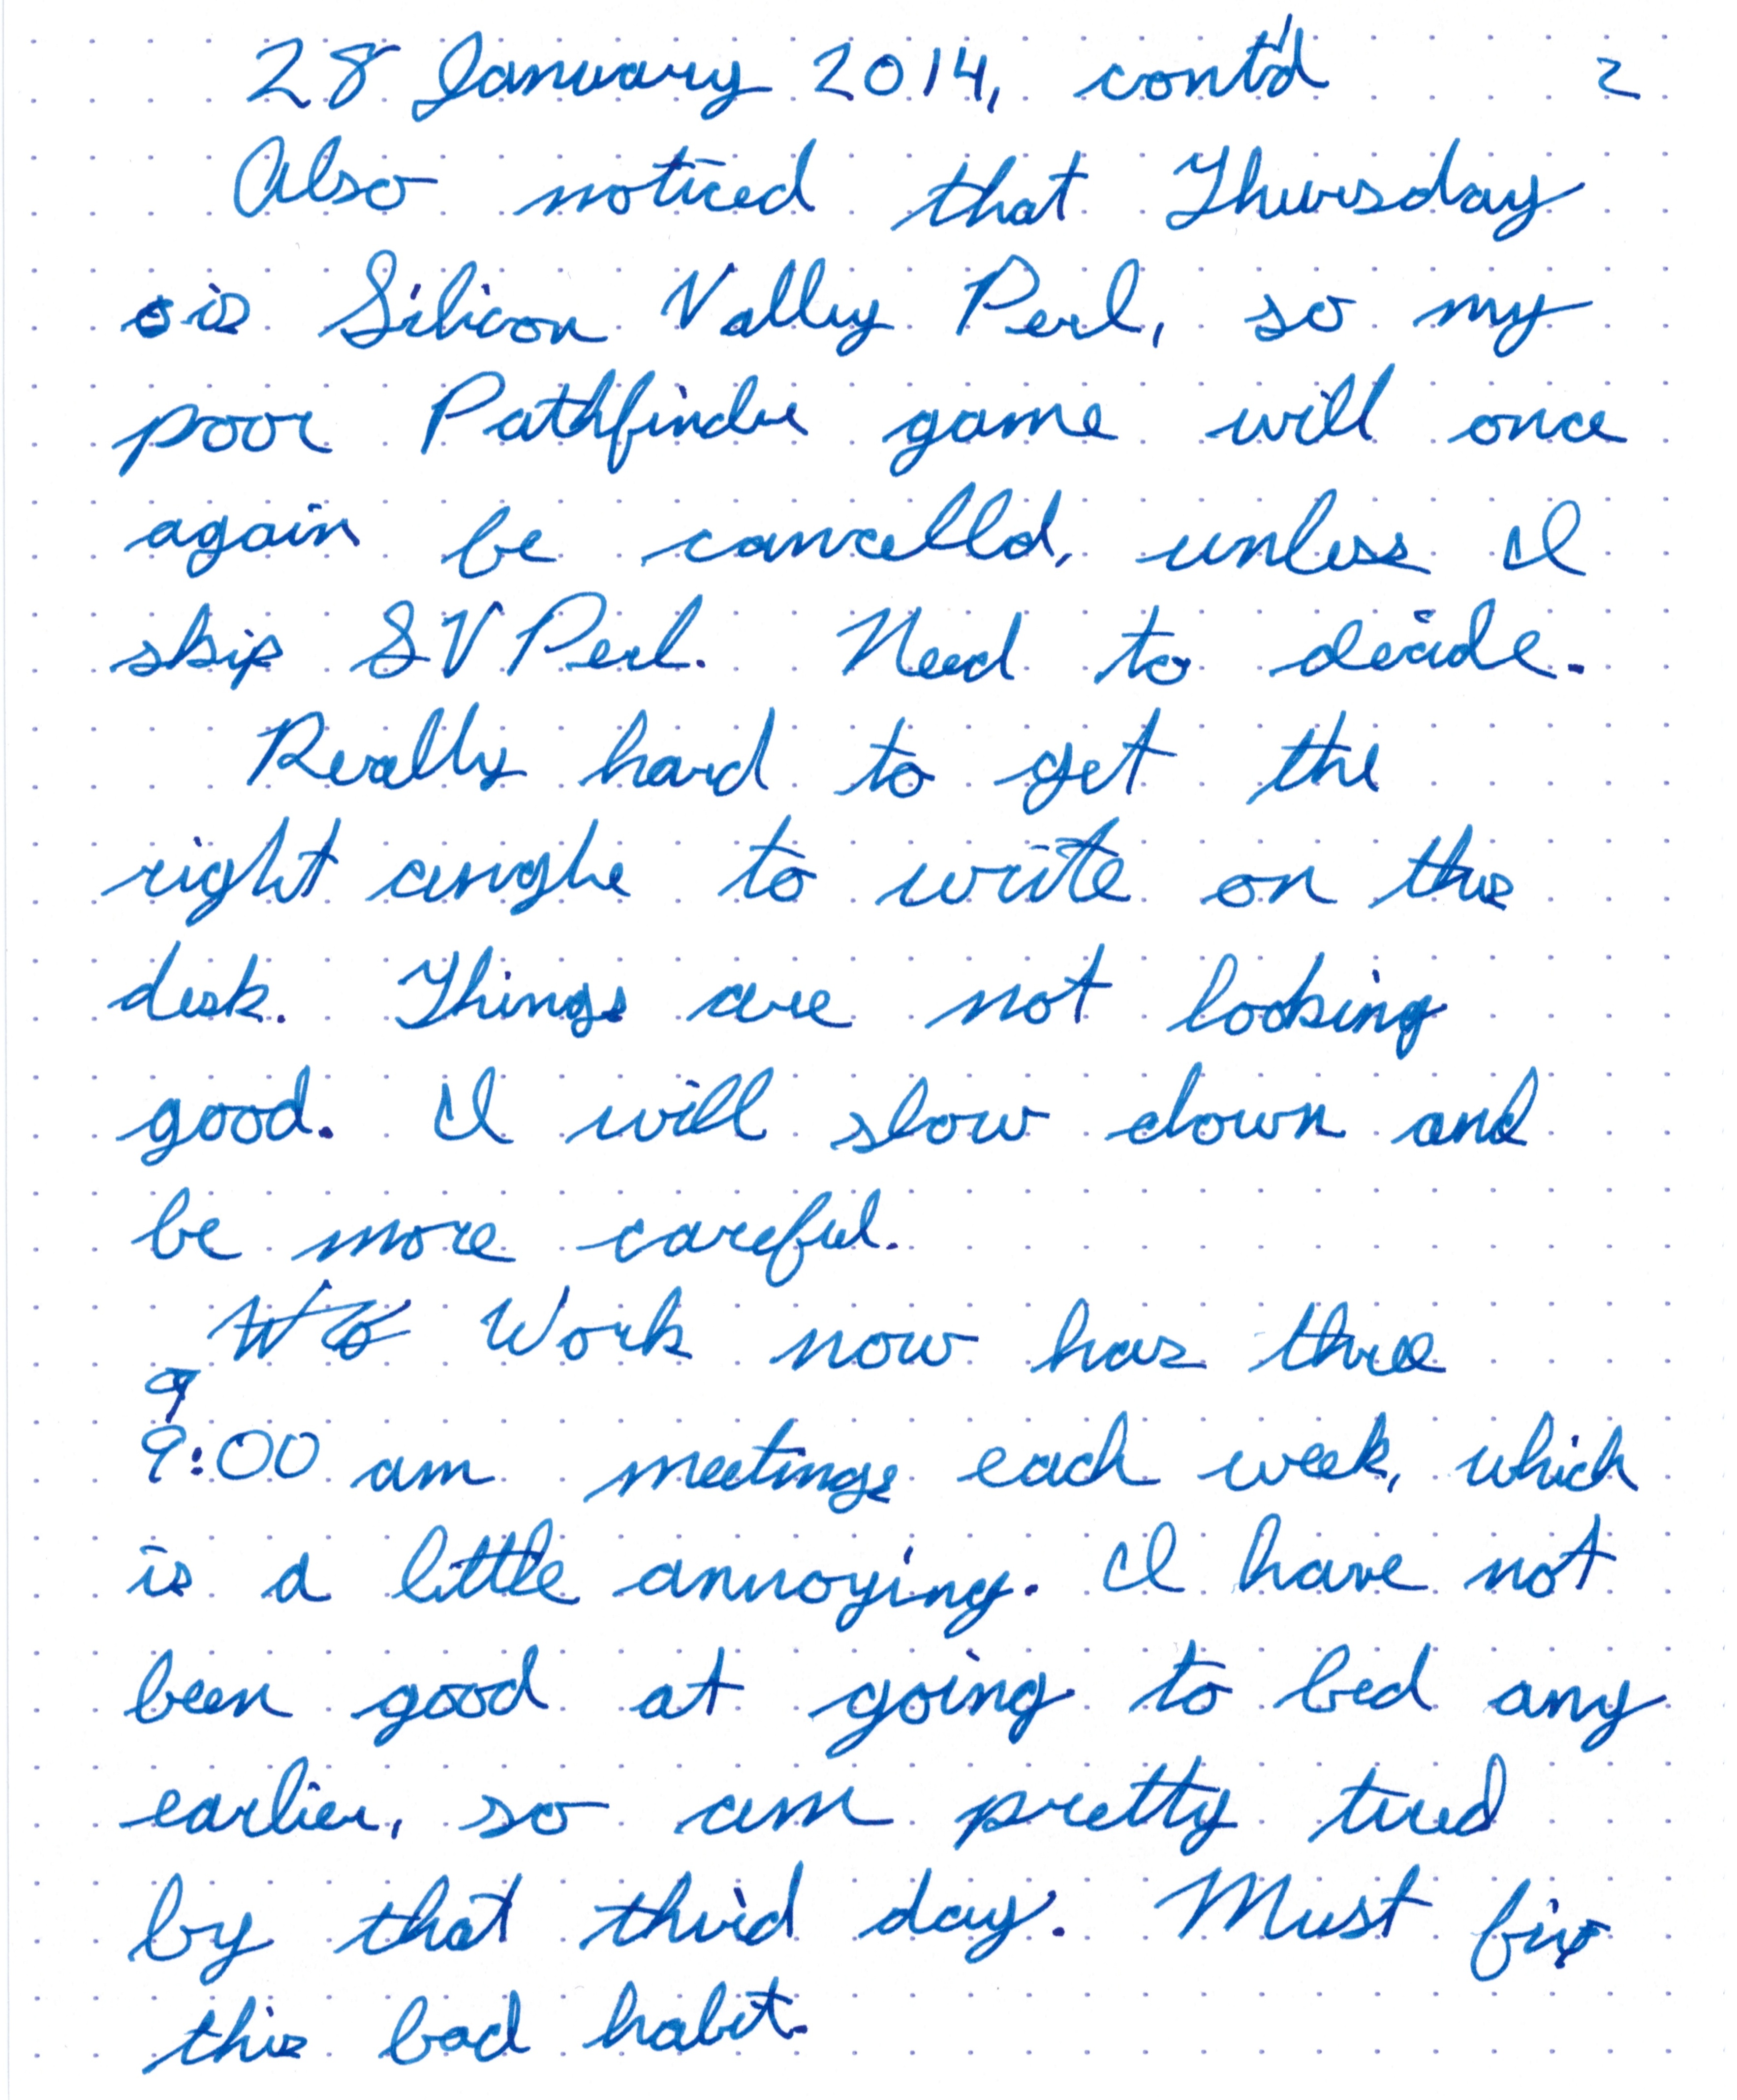 28 January 2014, cont'd 2
Also noticed that Thursday
is Silicon Valley Perl, so my
poor Pathfinder game will once
again be cancelled, unless I
skip SV Perl. Need to decide.
Really hard to get the
right angle to write on this
desk. Things are not looking
good. I will slow down and
be more careful.
Wo Work now has three
9
9:00 am meetings each week, which
is a little annoying. I have not
been good at going to bed any
earlier, so am pretty tired
by that third day. Must fix
this bad habit.